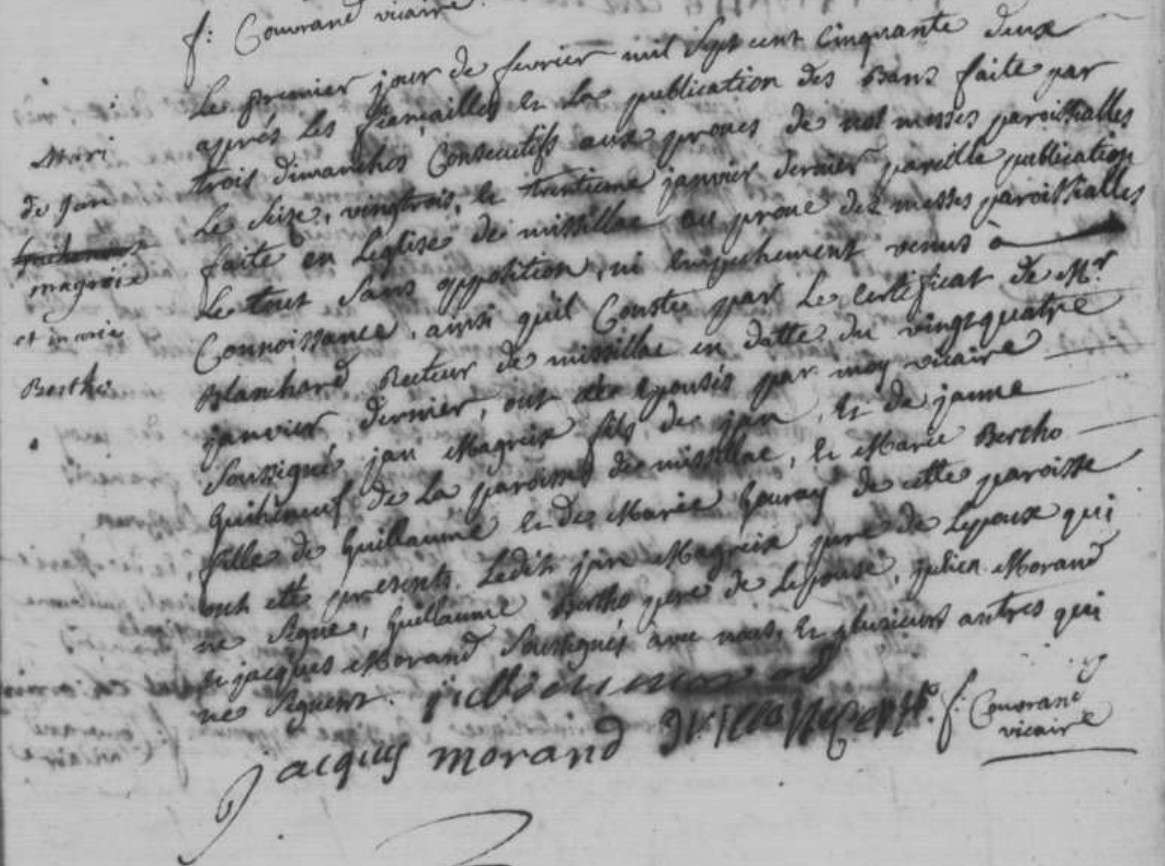 f: Couvrand vicaire.
Le premier jour de fevrier mil sept cent cinquante deux
apprés les fiançailles et la publication des Bans faite par
trois dimanches Consecutifs aux prones de nos messes paroissialles
Le seize, vingtrois, le trentieme janvier dernier pareille publication
faite en Leglise de missillac au prone des messes paroissialles
Le tout sans opposition, ni empechement venus à
Connoissance, ainsi quil Conste par Le Certificat de Mr
Blanchard Recteur de missillac en datte du vingt quatre
janvier dernier, ont été epousés par moy vicaire
soussigné jan Magreix fils de jan, et de janne
Guiheneuf de La paroisse de missillac, et Marie Bertho
fille de Guillaume et de Marie Gouray de cette paroisse
ont eté presents Ledit jan Magreix pere de Lepoux qui
ne signe, Guillaume Bertho pere de Lepouse, julien Morand
et jacques Morand soussignés avec nous, et plusieurs autres qui
ne signent.
jacques morand
f: Couvrand
vicaire
Mari
de jan
magreix
et marie
Bertho